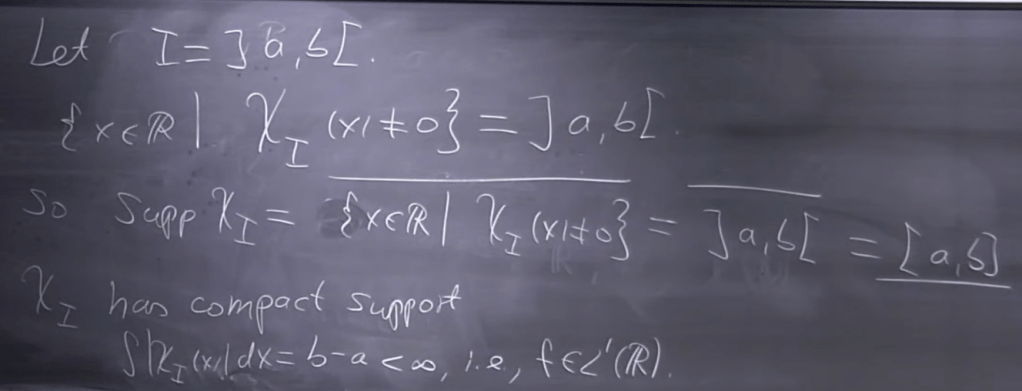 Let I = ]a,b[.
{x∈ℝ | χ_I(x) ≠ 0} = ]a,b[.
So supp χ_I = \overline{{x∈ℝ | χ_I(x) ≠ 0}} = \overline{]a,b[} = [a,b]
χ_I has compact support
∫|χ_I(x)|dx = b-a < ∞, i.e., f ∈ L¹(ℝ).